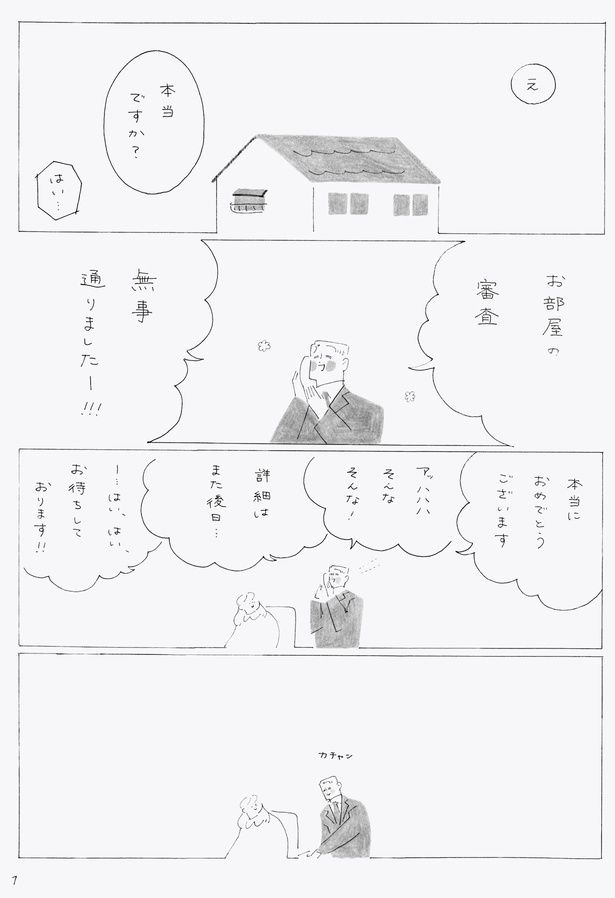 え
本当
ですか？
はい…
お部屋の
審査
無事
通りましたー!!!
本当に
おめでとう
ございます
アッハハハ
そんな
そんな！
詳細は
また後日…
ー…はい、はい、
お待ちして
おります!!
カチャン
1